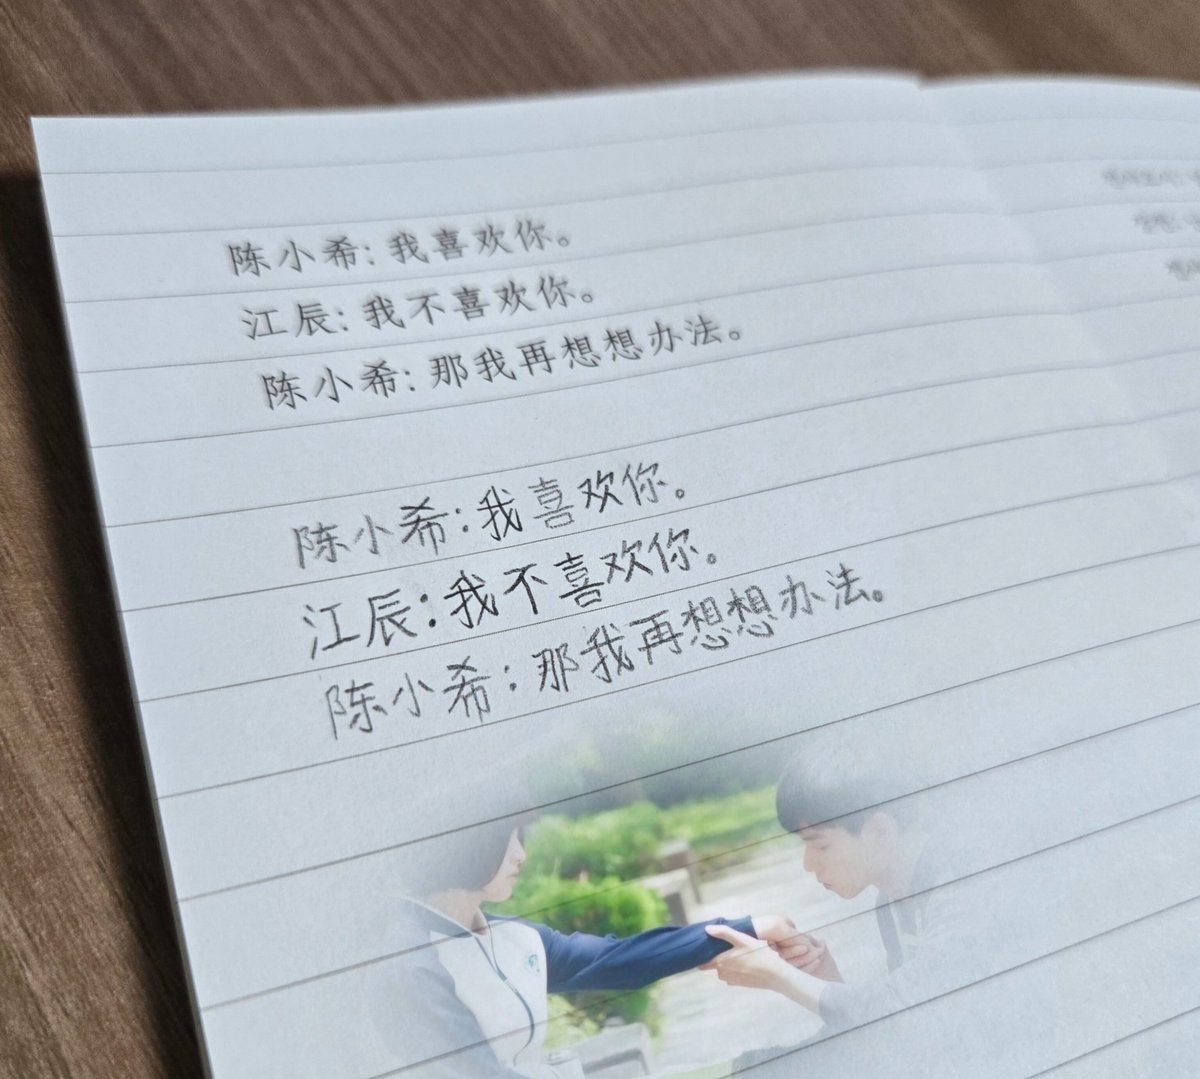 陈小希: 我喜欢你。
江辰: 我不喜欢你。
陈小希: 那我再想想办法。
陈小希: 我喜欢你。
江辰: 我不喜欢你。
陈小希: 那我再想想办法。